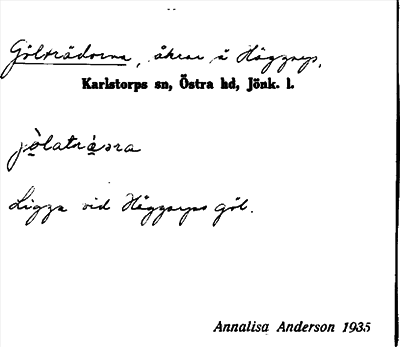 Gölträdorna, åkrar å Häggarps,
Karlstorps sn, Östra hd, Jönk. l.
jòlatràɷra
Ligga vid Häggarps göl.
Annalisa Anderson 1935